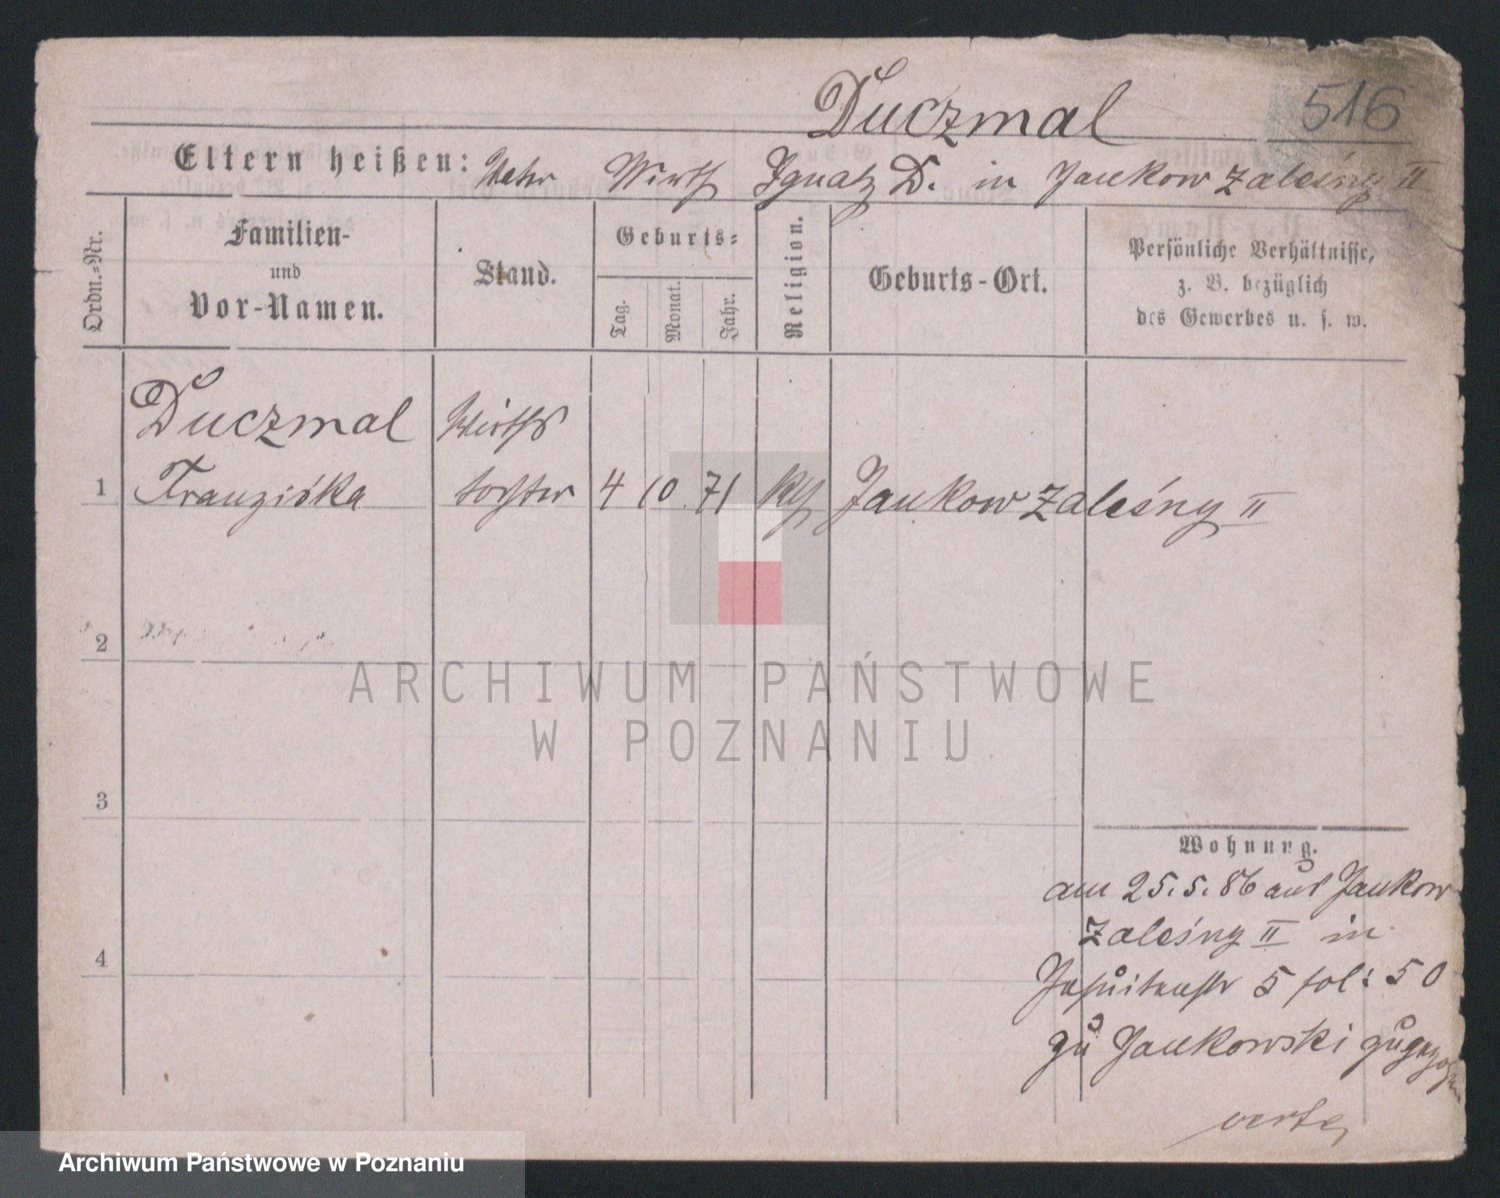 Duczmal
516
Eltern heißen: Vater Wirth Ignatz D. in Jankow Zaleśny II
Ordn.-Nr.
Familien-
und
Vor-Namen.
Stand.
Geburts-
Tag.
Monat.
Jahr.
Religion.
Geburts-Ort.
Persönliche Verhältnisse,
z. B. bezüglich
des Gewerbes u. s. w.
Duczmal Wirths
1 Franziska tochter 4 10 71 kth Jankow Zaleśny II
2
3
4
Wohnung.
am 25.5.86 aus Jankow
Zaleśny II in
Jesuitenstr 5 fol: 50
zu Jankowski zugezogen
verte
ARCHIWUM PAŃSTWOWE
W POZNANIU
Archiwum Państwowe w Poznaniu